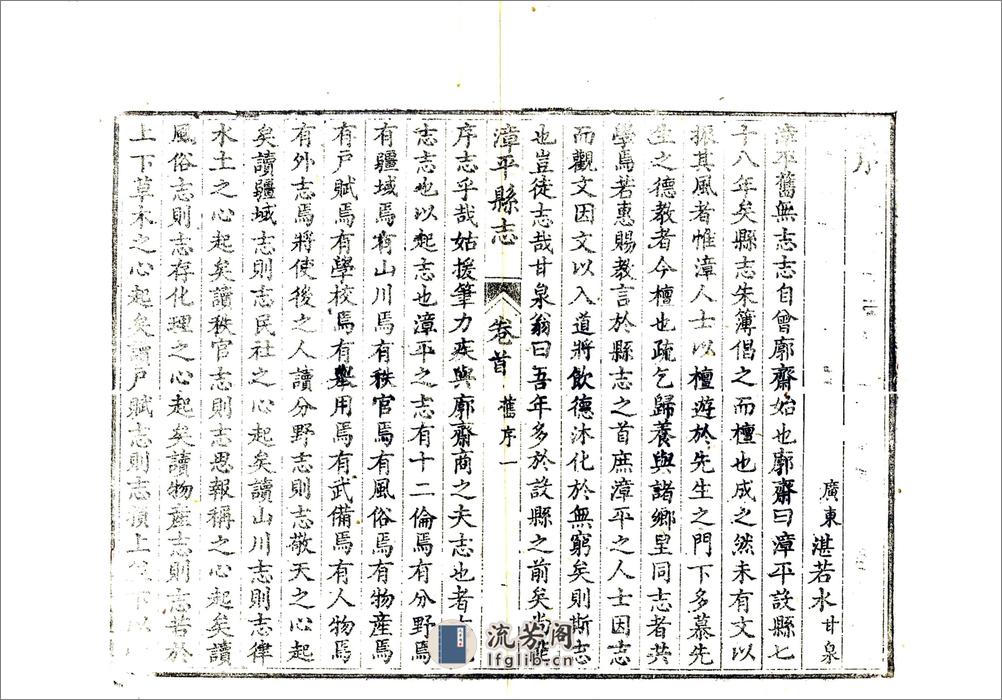 序
廣東 湛若水 甘泉
漳平舊無志志自曾廓齋始也廓齋曰漳平設縣七
十八年矣縣志朱簿倡之而檀也成之然未有文以
振其風者惟漳人士以檀遊於先生之門下多慕先
生之德教者今檀也疏乞歸養與諸鄉里同志者共
學焉若惠賜教言於縣志之首庶漳平之人士因志
而觀文因文以入道將飲德沐化於無窮矣則斯志
也豈徒志哉甘泉翁曰吾年多於設縣之前矣尚
漳平縣志 卷首 舊序 一
序志乎哉姑援筆力疾與廓齋商之夫志也者
志志也以起志也漳平之志有十二倫焉有分野焉
有疆域焉有山川焉有秩官焉有風俗焉有物產焉
有戶賦焉有學校焉有舉用焉有武備焉有人物焉
有外志焉將使後之人讀分野志則志敬天之心起
矣讀疆域志則志民社之心起矣讀山川志則志律
水土之心起矣讀秩官志則志思報稱之心起矣讀
風俗志則志存化理之心起矣讀物產志則志若於
上下草木之心起矣讀戶賦志則志損上益下以
流芳阁
lfglib.cn